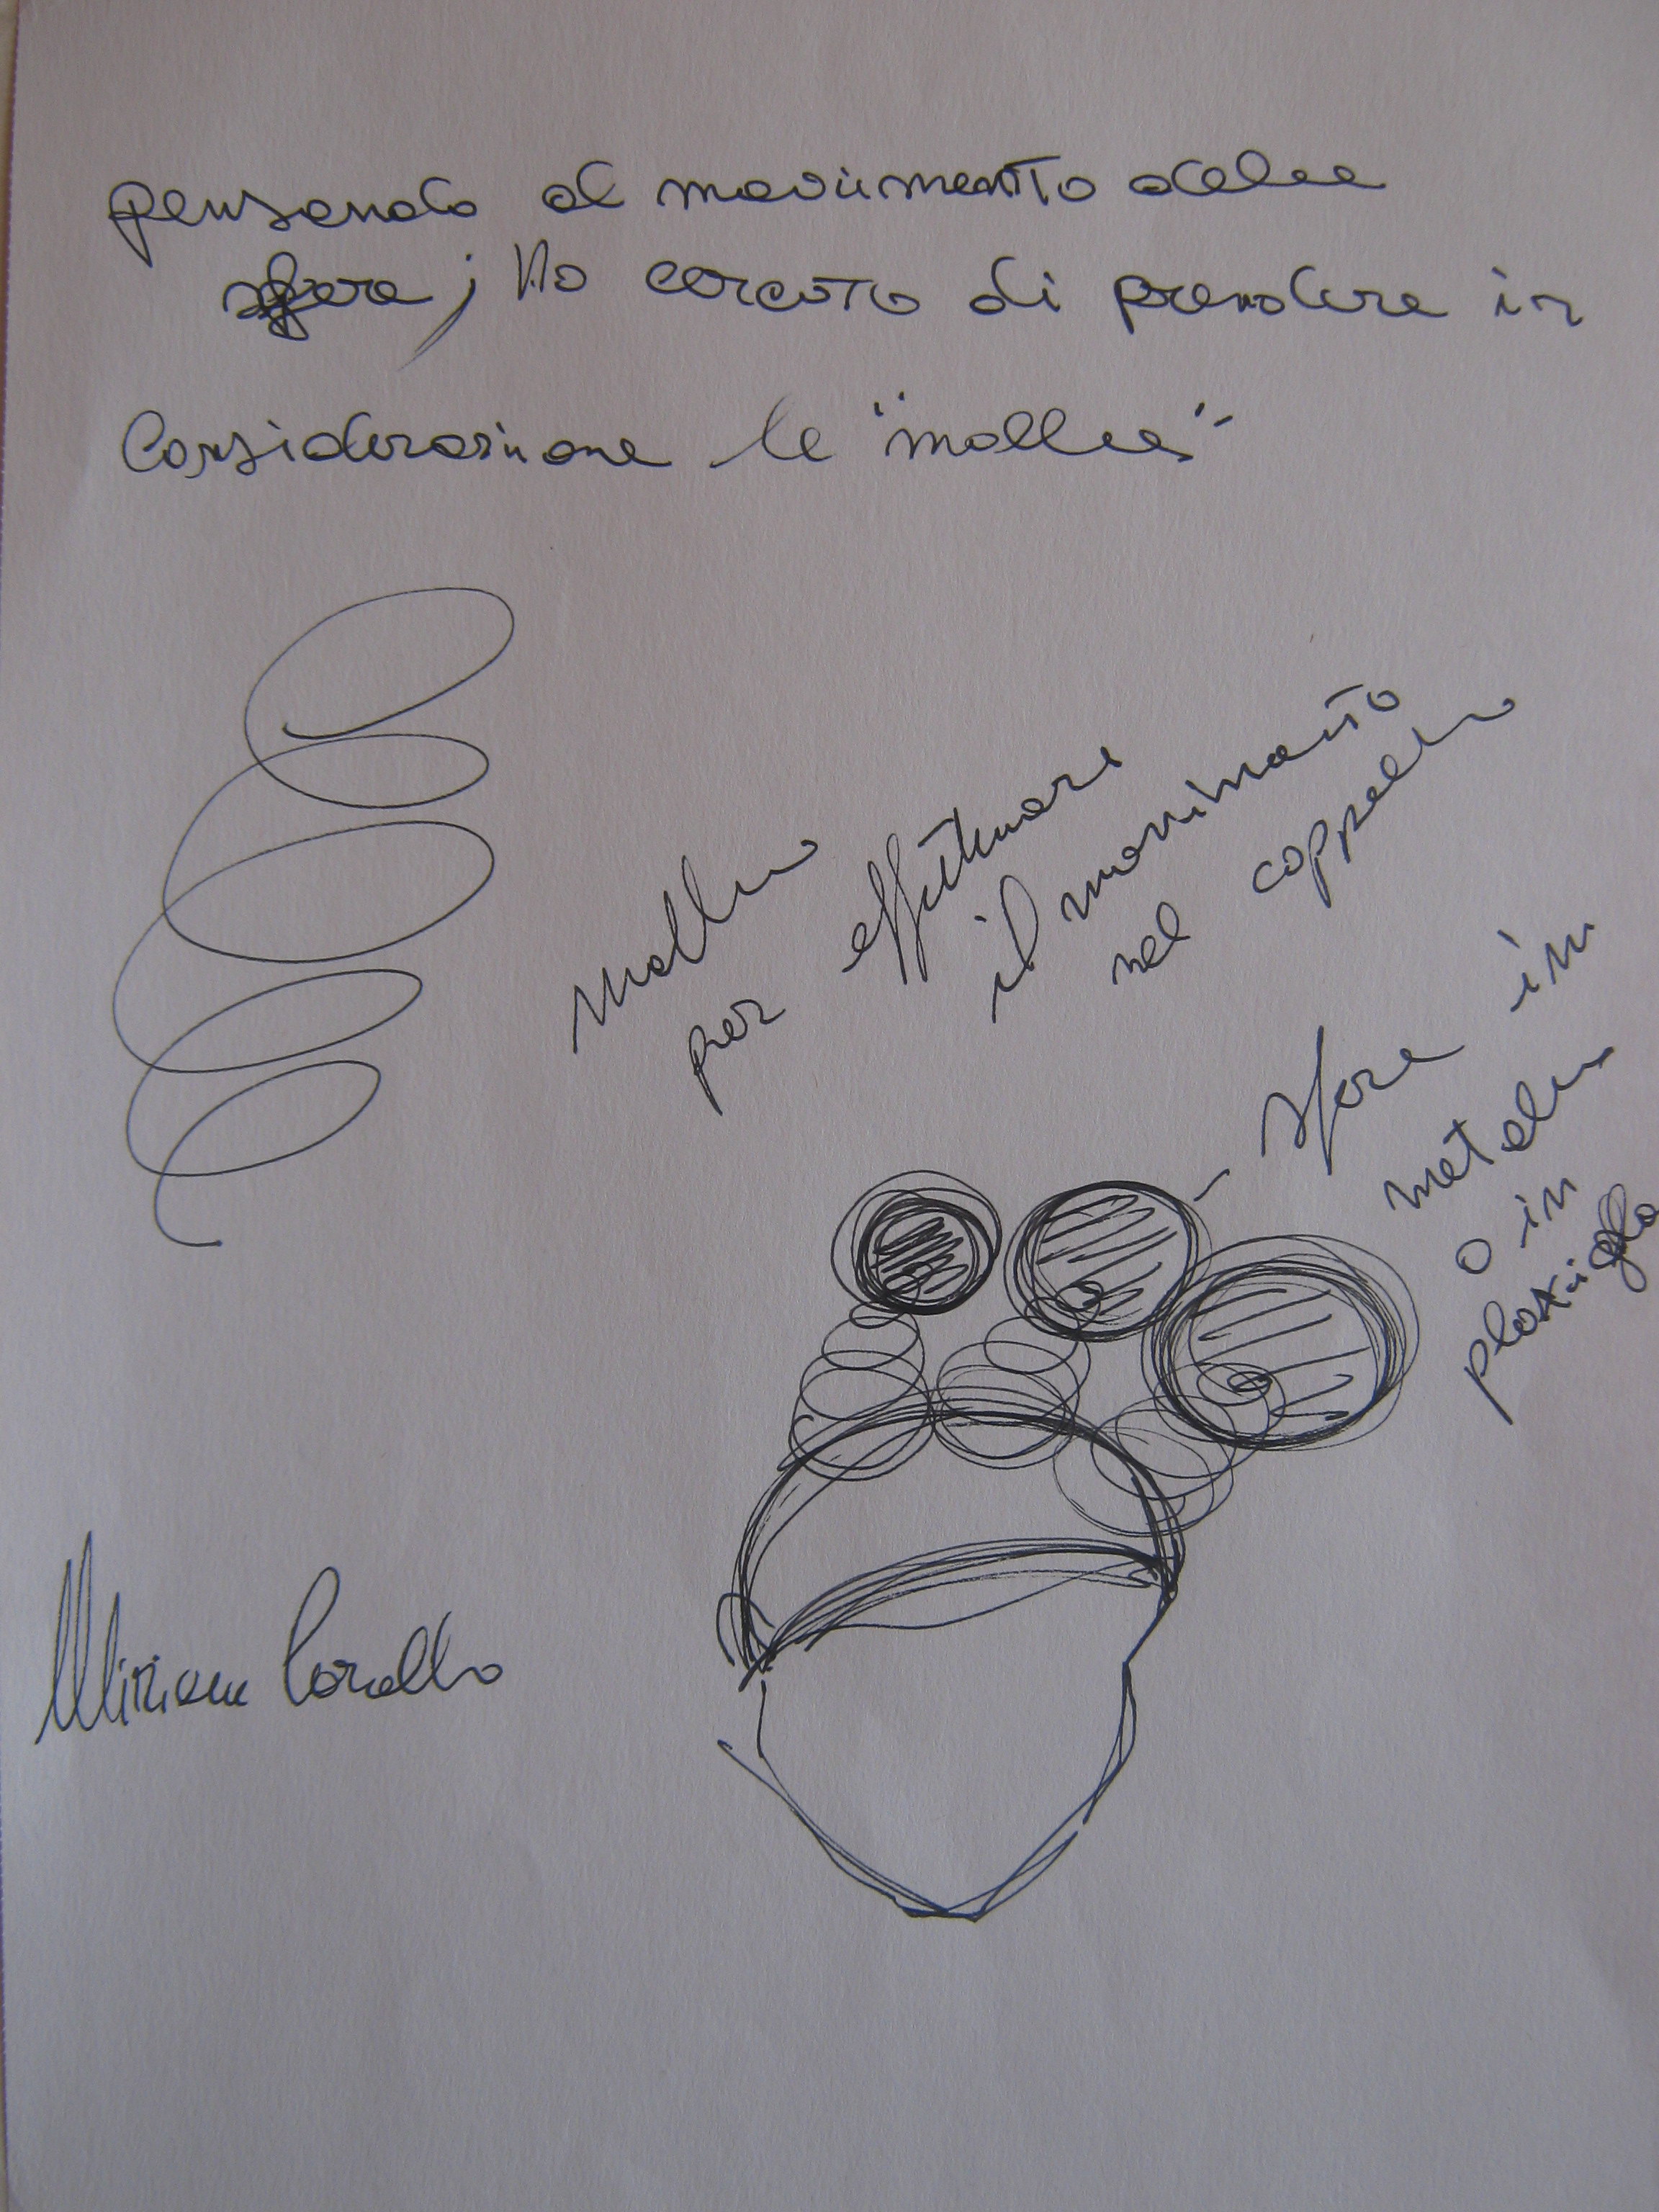 pensando al movimento delle
sfere, Ho cercato di prendere in
Considerazione le "molle"
molla
per effettuare
il movimento
nel cappello
sfere in
metallo
o in
plexiglas
Miriam Corallo